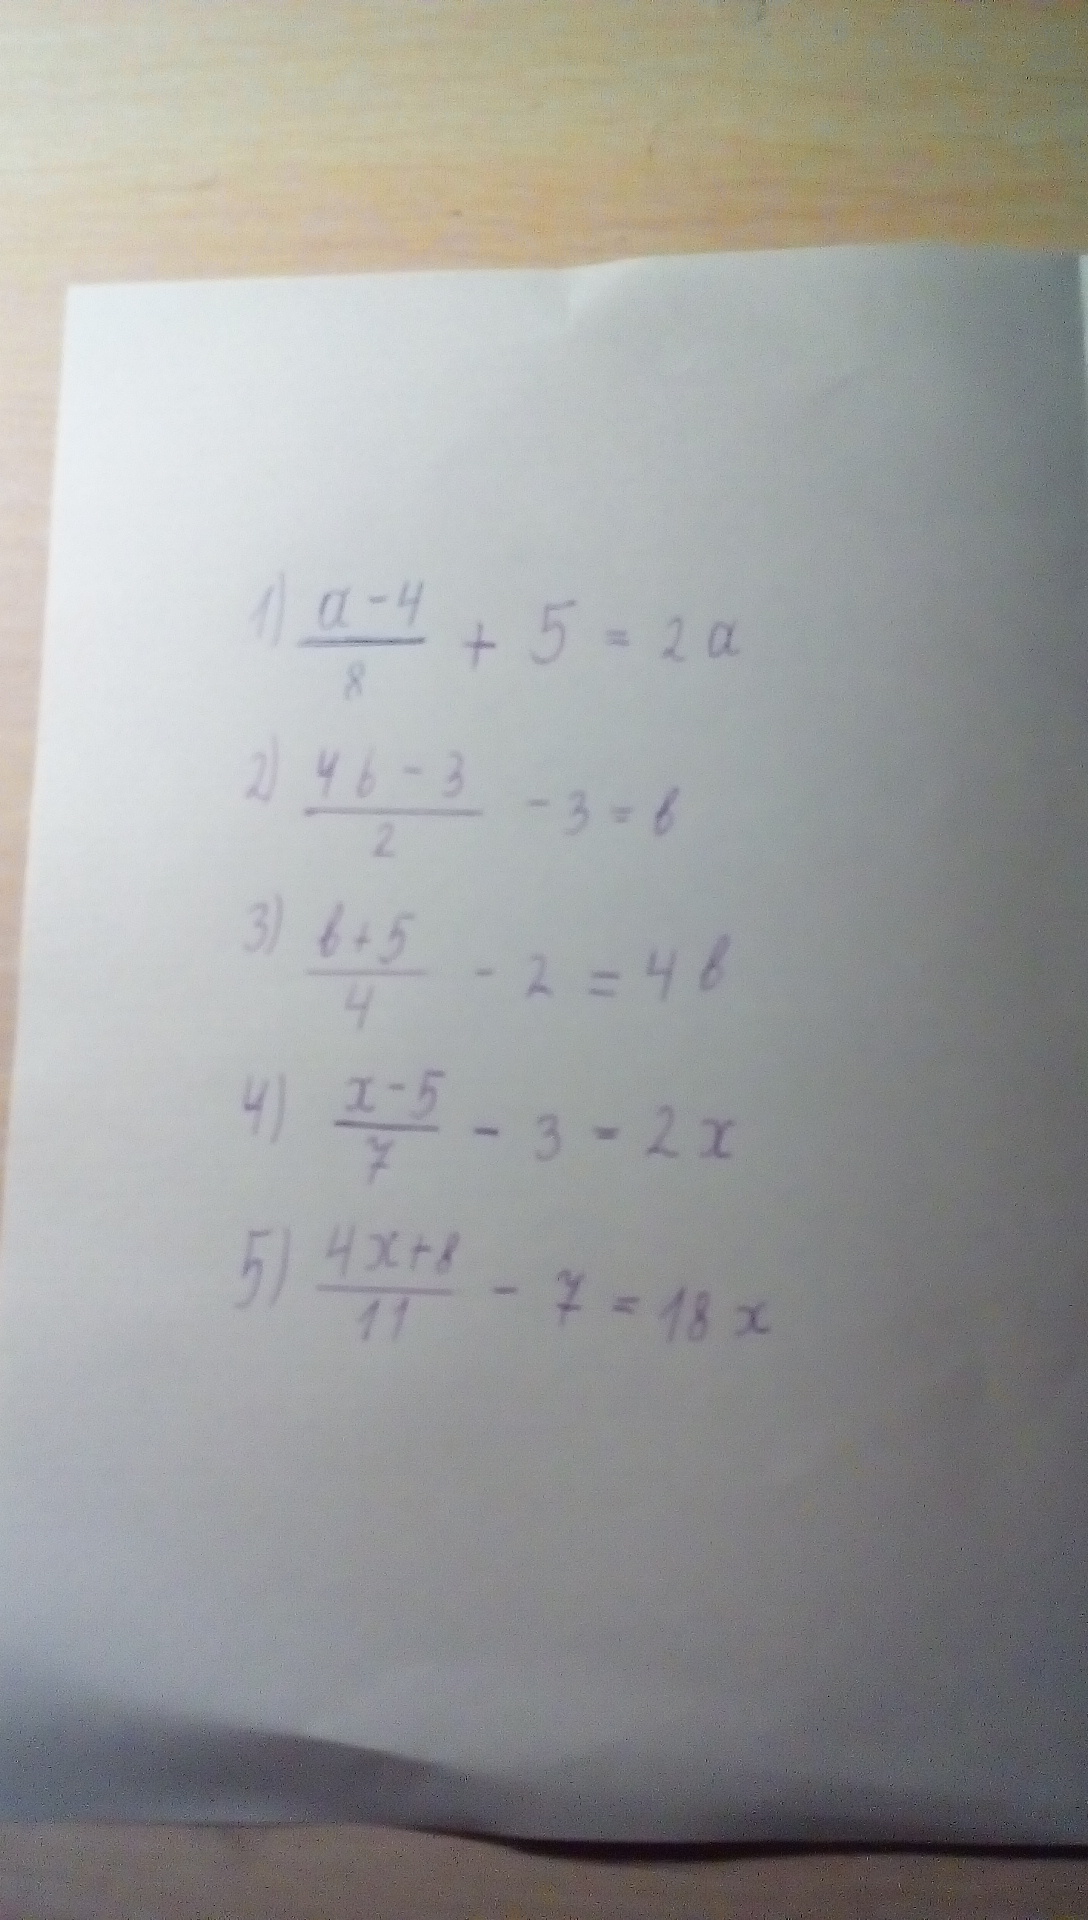 1) (a-4)/8 + 5 = 2a
2) (4b-3)/2 - 3 = b
3) (b+5)/4 - 2 = 4b
4) (x-5)/7 - 3 = 2x
5) (4x+8)/11 - 7 = 18x